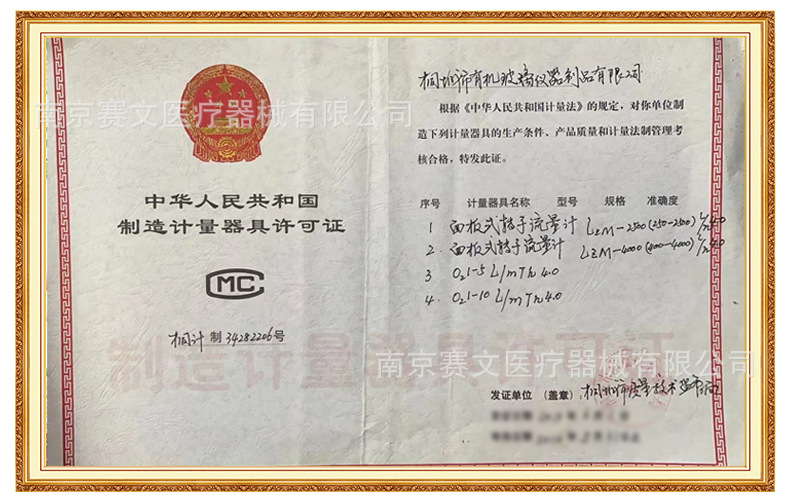 南京赛文医疗器械有限公司
中华人民共和国
制造计量器具许可证
CMC
桐计 制 34282206 号
桐城市有机玻璃仪器制品有限公司
根据《中华人民共和国计量法》的规定，对你单位制
造下列计量器具的生产条件、产品质量和计量法制管理考
核合格，特发此证。
序号 计量器具名称 型号 规格 准确度
1 面板式转子流量计 LZM-2500(250-2500)
2. 面板式转子流量计 LZM-4000(400-4000)
3 0.1-5 L/m 4.0
4. 0.1-10 L/m 4.0
制造计量器具许可证
南京赛文医疗器械有限公司
发证单位（盖章）：桐城市质量技术监督局